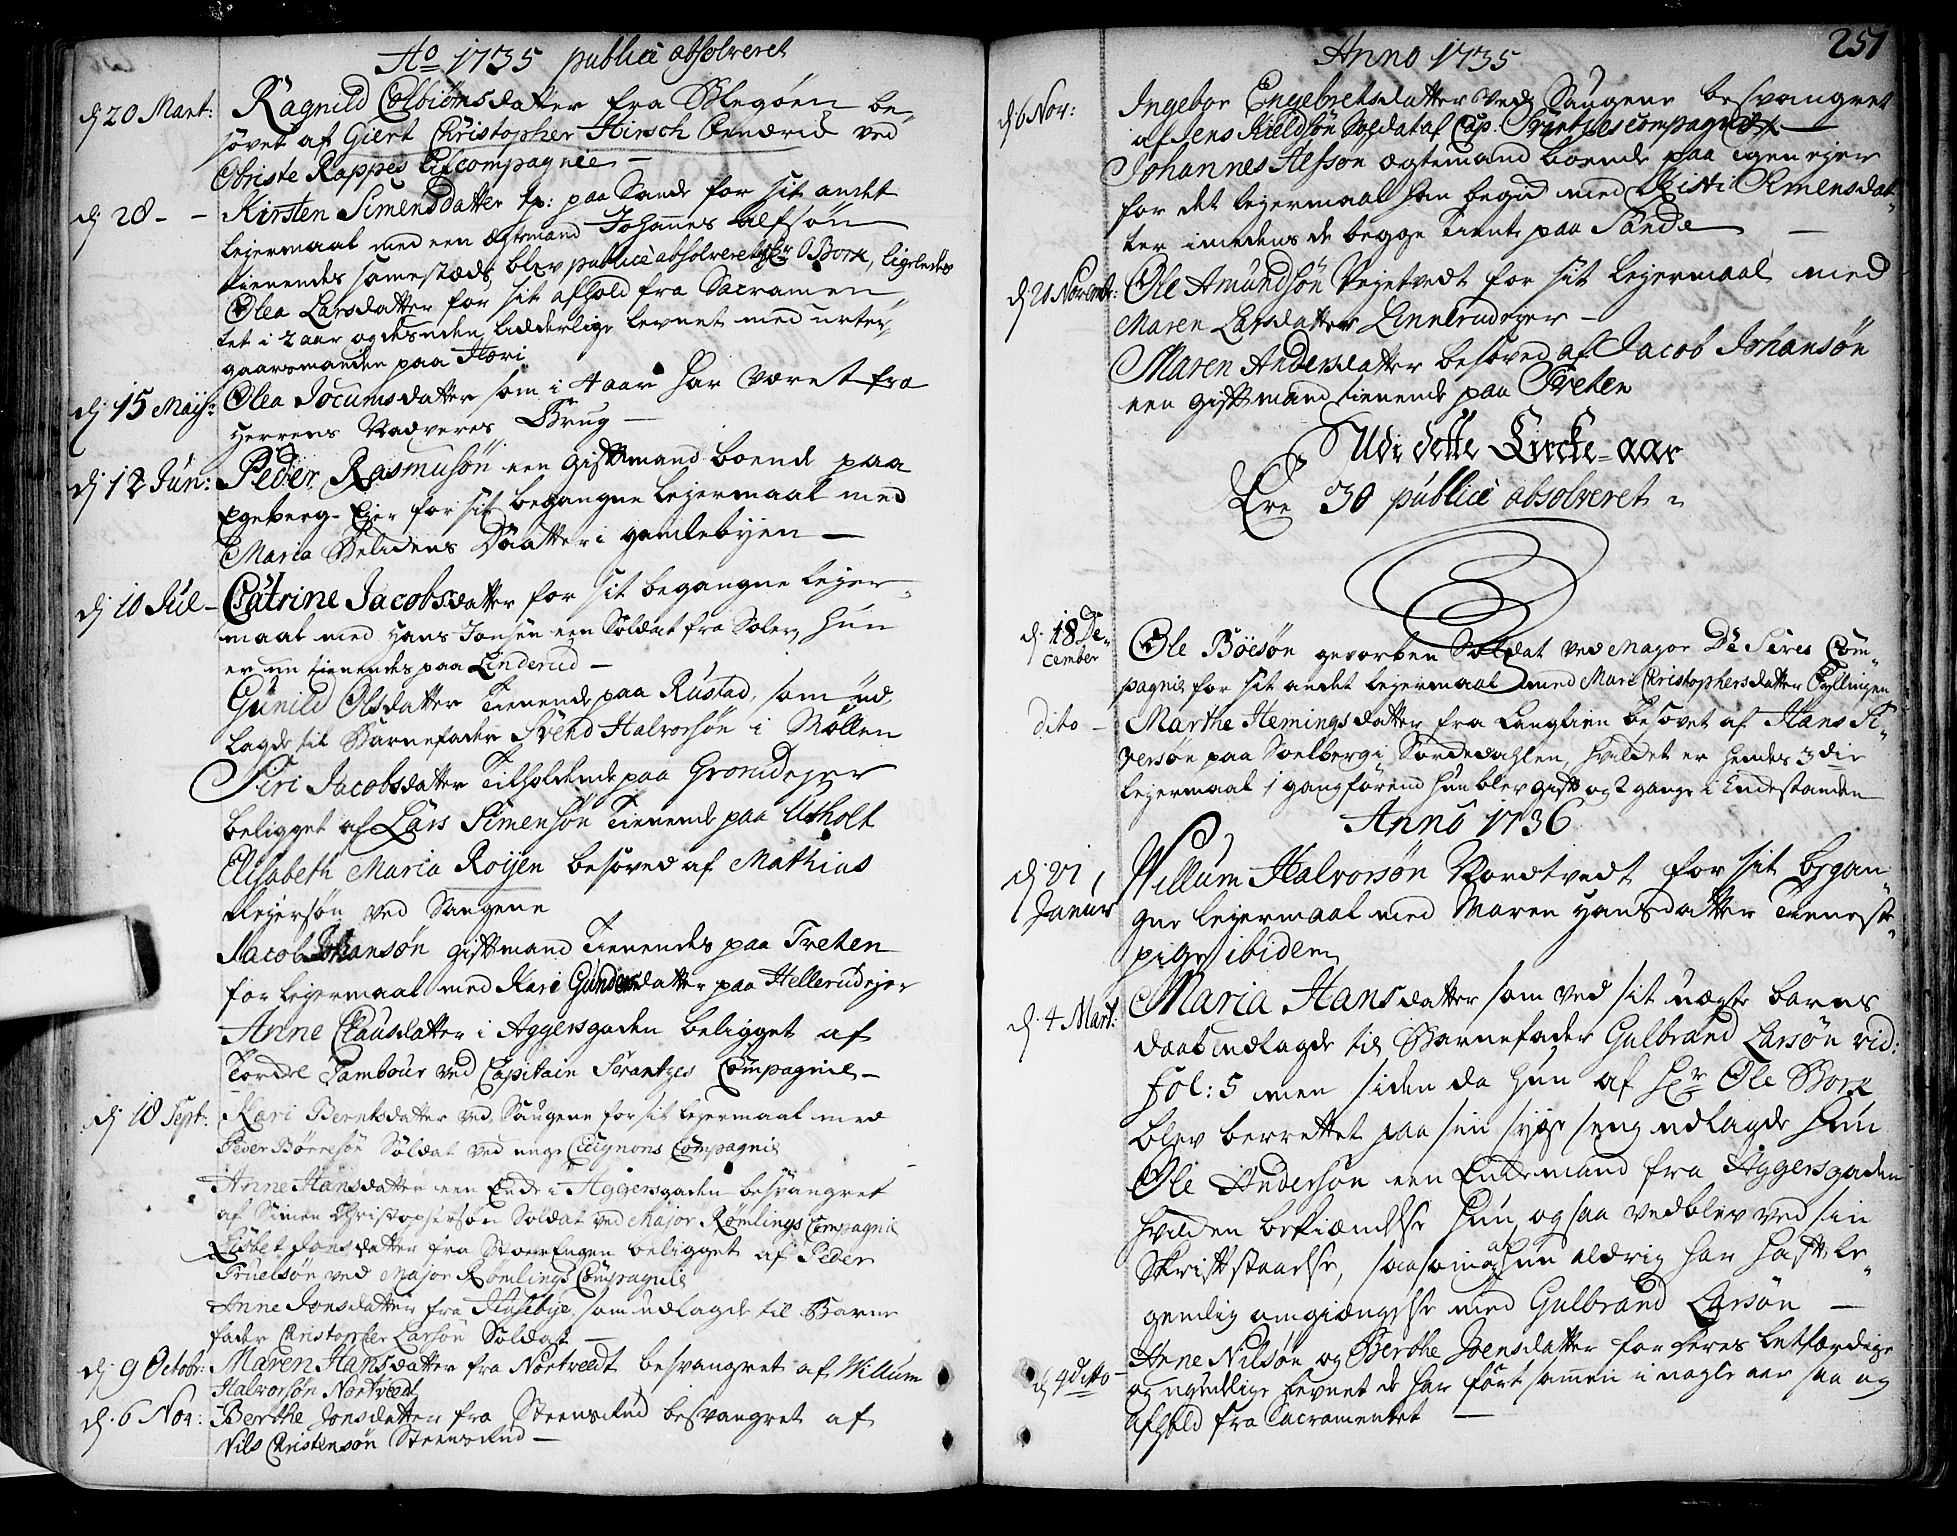 Ao 1735 publicè absolveret
dj 20 Mart: Ragnild Colbiörnsdatter fra Blegöen be-
sövet af Giert Christopher Hirsch ved
Obriste Rappes Lifcompagnie –
dj 28 – – Kirsten Simensdatter paa Sande for sit andet
lejermaal med een Ægtemand Johannes Alfsön
tienendes sammestæds, blev publicè absolveret Hr O Bork, ligeledes
Olea Larsdatter for sit afhold fra Sacramen-
tet i 2 aar og desuden lidderlige levnet med urte-
gaarsmanden paa
dj 15 Maij: Olea Jocumsdatter som i 4 aar har været fra
Herrens Nadveres Brug –
dj 12 Jun: Peder Rasmusön een giftmand boende paa
Egeberg-Ejer for sit begangne lejermaal med
Maria Datter i gamlebyen –
dj 10 Jul – Catrine Jacobsdatter for sit begangne lejer-
maal med Hans Jonsen een Soldat fra Soler, hun
er nu tienendes paa Linderud –
Gunild Olsdatter Tienende paa Rustad, som ud-
lagde til Barnefader Svend Halvorsön i Möllen
Siri Jacobsdatter Tilholdende paa Gronidejer
beligget af Lars Simensön Tienende paa Utholt
Elisabeth Maria Roijen besoved af Mathias
Rejersön ved Saugene
Jacob Johansön giftmand Tienendes paa Treten
for lejermaal med Kari Gundersdatter paa Hellerudejer
Anne Clausdatter i Aggersgaden beligget af
Tordre Tambour ved Capitain Frantzes Compagnie –
dj 18 Sept: Kari Berntsdatter ved Saugene for sit lejermaal med
Peder Börresön Soldat ved unge Cicignons Compagnie
Anne Hansdatter een Enke i Aggersgaden besvangret
af Simen Christophersön Soldat ved Major Römlings Compagnie
Lisbet Jonsdatter fra StoerEngen beligget af Peder
Truelsön ved Major Römlings Compagnie
Anne Jonsdatter fra Husebye, som udlagde til Barne
fader Christopher Larsön Soldat –
dj 9 Octobr: Maren Hansdatter fra Nortvedt besvangret af Willum
Halvorsön Nortvedt
dj 6 Nov: Berthe Jonsdatter fra Steensrud besvangret af
Nils Christensön Steensrud –
251
Anno 1735
dj 6 Nov: Ingebor Engebretsdatter ved Saugene besvangret
af Jens Kieldsön Soldat af Cap. Frantzes compagnie –
Johannes Alfson ægtemand boende paa
for det lejermaal han begik med Kisti Simensdat-
ter imedens de begge Tiente paa Sande –
dj 20 Novembr: Ole Amundsön Vejetvedt for sit lejermaal med
Maren Larsdatter Linnerudejer –
Maren Andersdatter besoved af Jacob Johansön
een giftmand tienende paa Treten
Udi dette Kircke-aar
Ere 30 publicè absolveret
dj. 18 De-
cember Ole Böesön gevorben Soldat ved Major De Seres Com-
pagnie for sit andet lejermaal med Mari Christophersdatter Fyllingen
dito – Marthe Hemingsdatter fra Langlien besovet af Hans Si-
versön paa Soelberg i Sördedahlen, hvilket er hendes 3die
lejermaal 1 gang förend hun blev gift og 2 gange i Enkestanden
Anno 1736
dj. 21
Januar Willum Halvorsön Nordtvedt for sit began-
gne lejermaal med Maren Hansdatter Tieneste-
pige ibidem
dj. 4 Mart: Maria Hansdatter som ved sit uægte barns
daab udlagde til Barnefader Gulbrand Larsön vid:
fol: 5 men siden da hun af Hr Ole Bork
blev berettet paa sin syge seng udlagde hun
Ole Andersön een Enkemand fra Aggersgaden
hvilken bekiændelse hun og saa vedblev ved sin
Skriftstaaelse, saasom og hun aldrig har haft le-
gemlig omgiængelse med Gulbrand Larsön –
dj 4 ditto – Anne Nilsön og Berthe Joensdatter for deres letfærdige
og ugudelige levnet de har fört sammen i nogle aar saa og
Afhold fra Sacramentet –